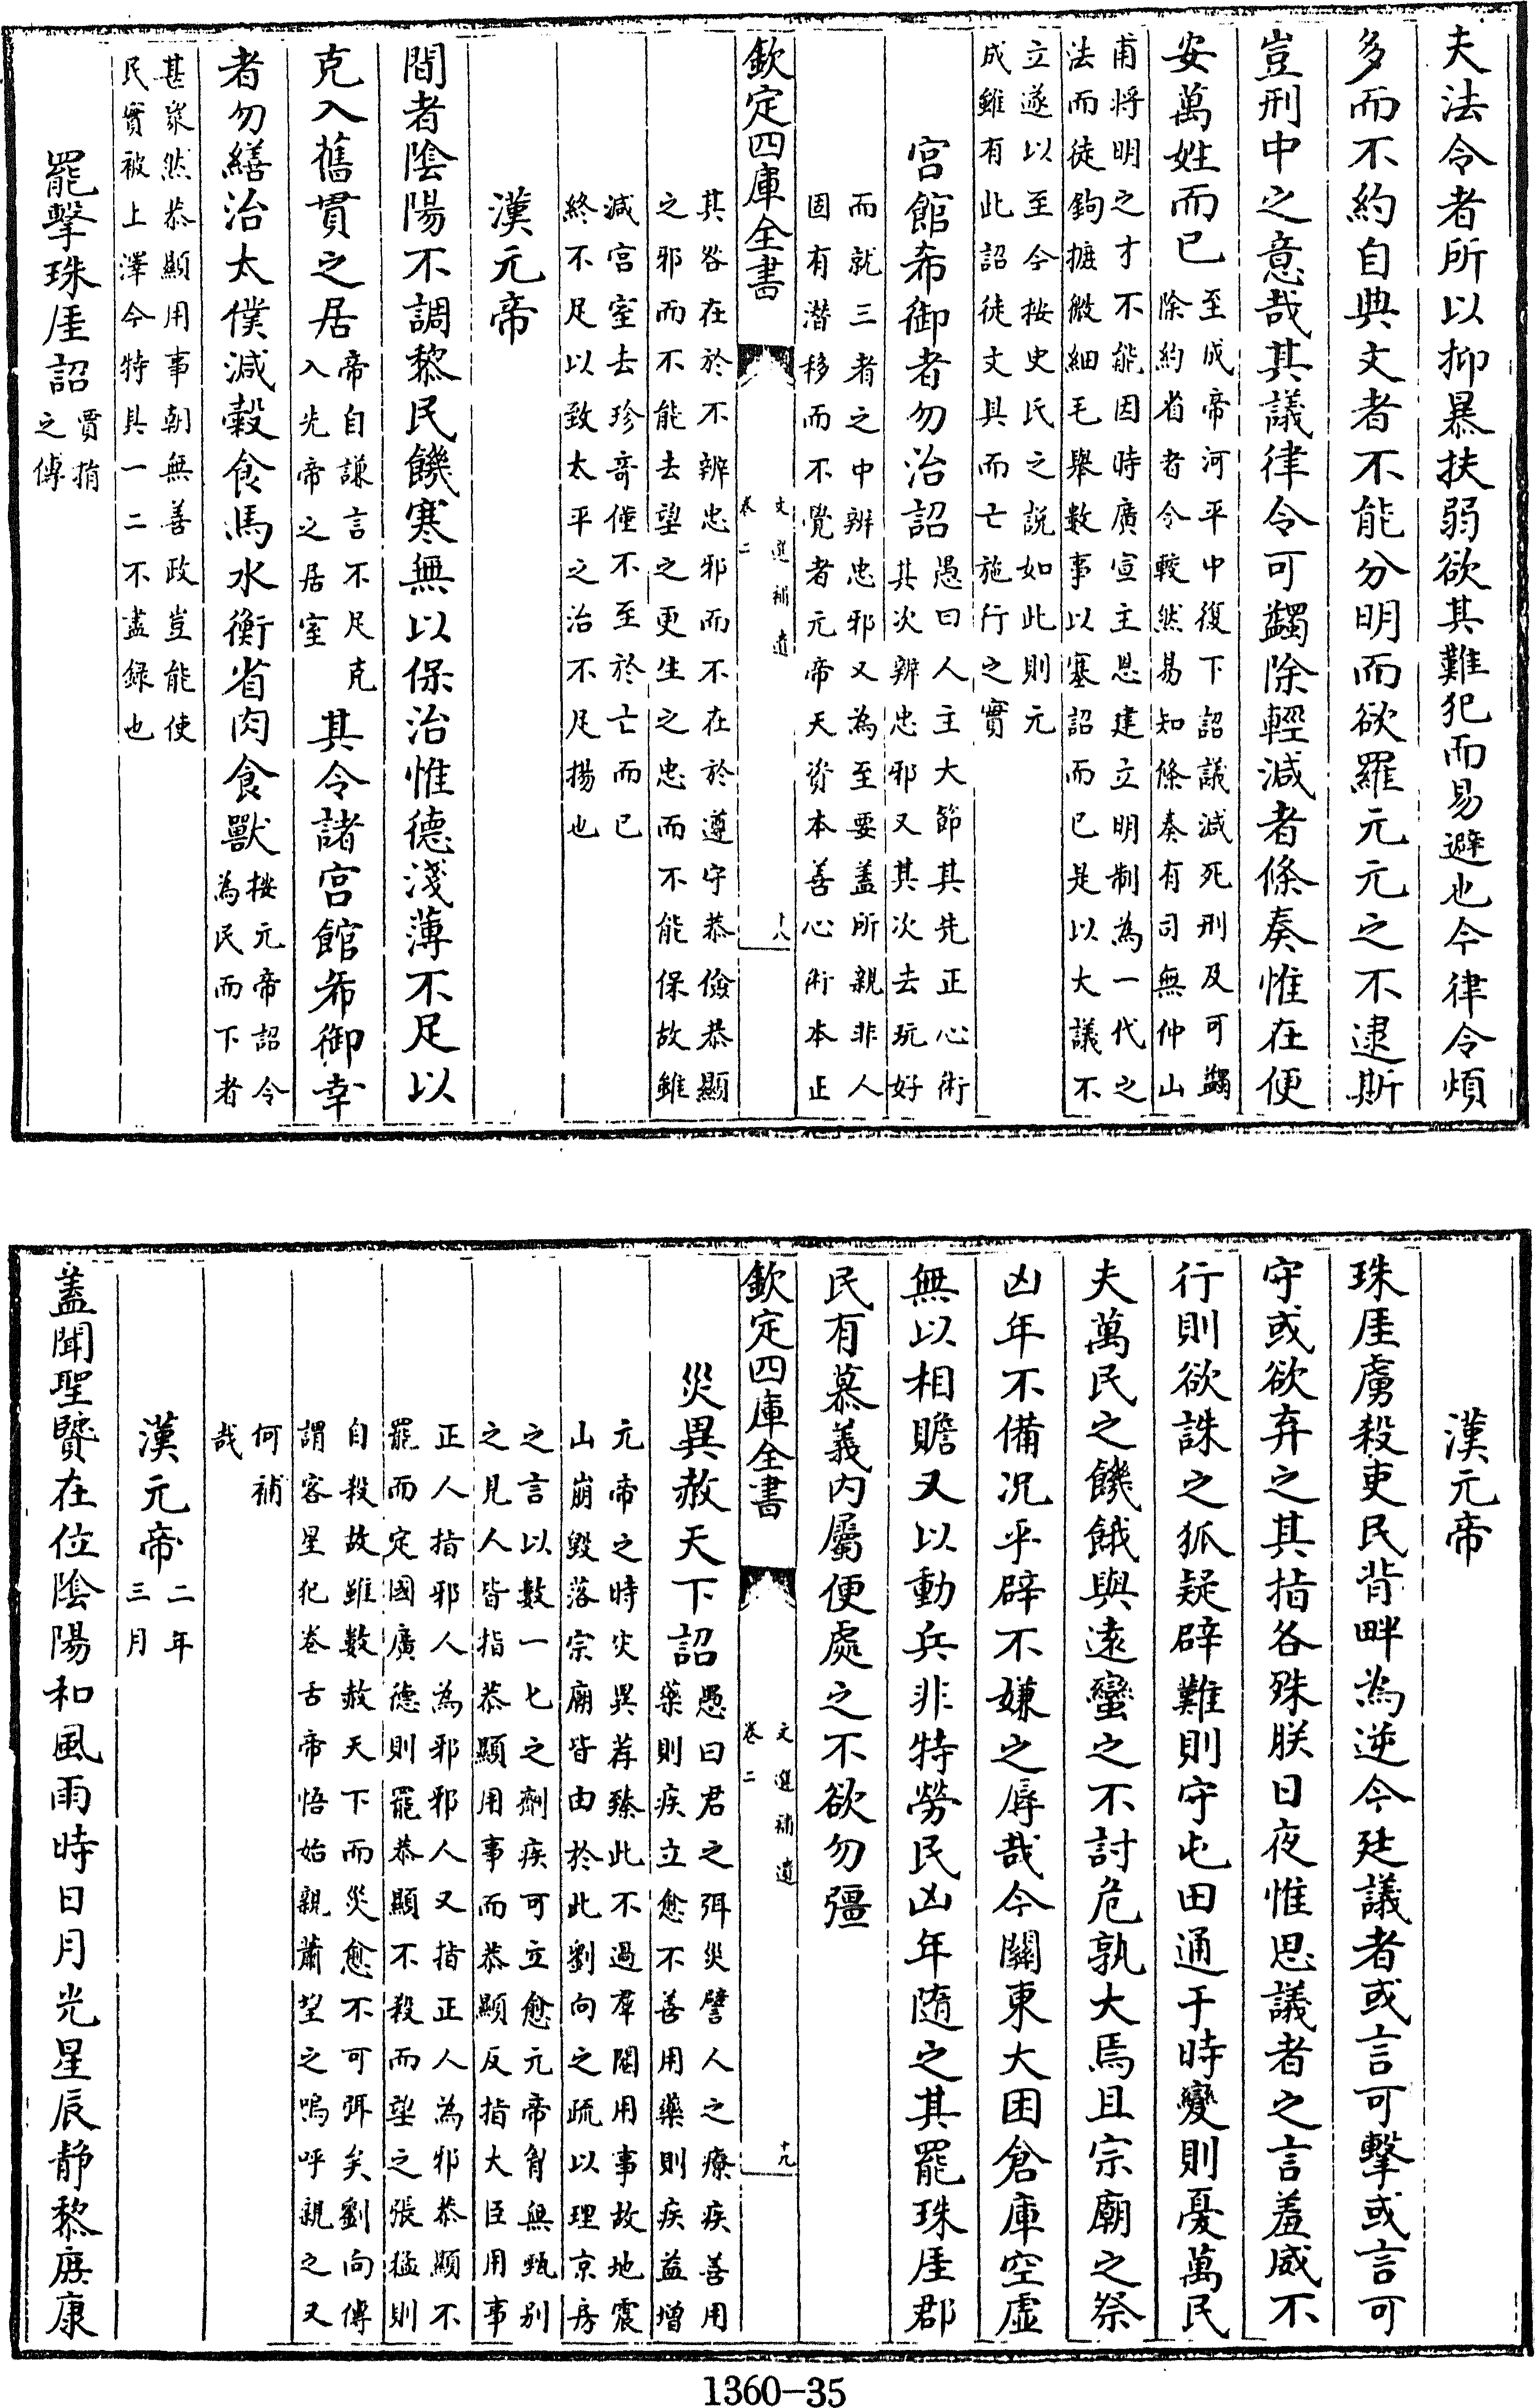 夫法令者所以抑暴扶弱欲其難犯而易避也今律令煩
多而不約自典文者不能分明而欲羅元元之不逮斯
豈刑中之意哉其議律令可蠲除輕減者條奏惟在便
安萬姓而已至成帝河平中復下詔議減死刑及可蠲
除約省者令較然易知條奏有司無仲山
甫将明之才不能因時廣宣主恩建立明制為一代之
法而徒鉤摭微細毛舉數事以塞詔而已是以大議不
立遂以至今按史氏之説如此則元
成雖有此詔徒文具而亡施行之實
宫館希御者勿治詔愚曰人主大節其先正心術
其次辨忠邪又其次去玩好
而就三者之中辨忠邪又為至要蓋所親非人
固有潜移而不覺者元帝天資本善心術本正
欽定四庫全書
文選補遺
卷二
十八
其咎在於不辨忠邪而不在於遵守恭儉恭顯
之邪而不能去望之更生之忠而不能保故雖
減宫室去珍竒僅不至於亡而已
終不足以致太平之治不足揚也
漢元帝
間者隂陽不調黎民饑寒無以保治惟德淺薄不足以
克入舊貫之居帝自謙言不足克
入先帝之居室其令諸宫館希御幸
者勿繕治太僕減榖食馬水衡省肉食獸按元帝詔令
為民而下者
甚衆然恭顯用事朝無善政豈能使
民實被上澤今特具一二不盡録也
罷擊珠厓詔賈捐
之傳
漢元帝
珠厓虜殺吏民背畔為逆今廷議者或言可擊或言可
守或欲弃之其指各殊朕日夜惟思議者之言羞威不
行則欲誅之狐疑辟難則守屯田通于時變則憂萬民
夫萬民之饑餓與遠蠻之不討危孰大焉且宗廟之祭
凶年不備况乎辟不嫌之辱哉今關東大困倉庫空虚
無以相贍又以動兵非特勞民凶年隨之其罷珠厓郡
民有慕義内屬便處之不欲勿彊
欽定四庫全書
文選補遺
卷二
十九
災異赦天下詔愚曰君之弭災譬人之療疾善用
藥則疾立愈不善用藥則疾益增
元帝之時灾異荐臻此不過羣閹用事故地震
山崩毁落宗廟皆由於此劉向之疏以理京房
之言以數一七之劑疾可立愈元帝胷無甄别
之見人皆指恭顯用事而恭顯反指大臣用事
正人指邪人為邪邪人又指正人為邪恭顯不
罷而定國廣德則罷恭顯不殺而望之張猛則
自殺故雖數赦天下而災愈不可弭矣劉向傳
謂客星犯卷舌帝悟始親蕭望之嗚呼親之又
何補
哉
漢元帝二年
三月
蓋聞聖賢在位隂陽和風雨時日月光星辰静黎庶康
1360-35